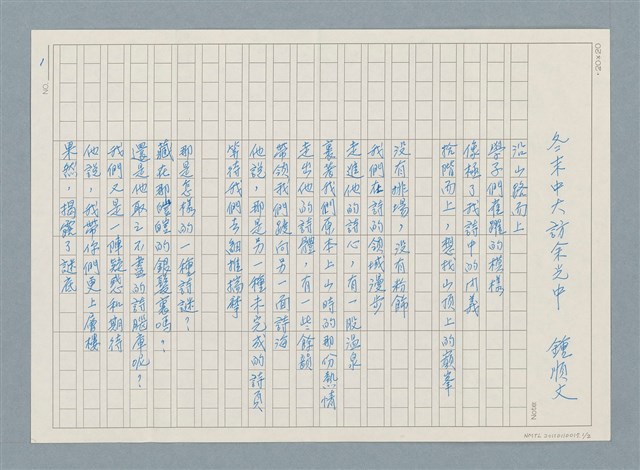 冬末中大訪余光中
鍾順文
沿山路而上
學子們雀躍的模樣
像極了我詩中的內義
拾階而上，想找山頂上的巔峯
沒有排場，沒有粉飾
我們在詩的領域漫步
走進他的詩心，有一股溫泉
裹著我們原本上山時的那份熱情
走出他的詩體，有一些餘韻
帶領我們駛向另一面詩海
他說，那是另一種未完成的詩頁
等待我們去細推摘擘
那是怎樣的一種詩謎？
藏在那皚皚的銀髮裏嗎？
還是他取之不盡的詩腦庫呢？
我們又是一陣疑惑和期待
他說，我帶你們更上層樓
果然，揭露了謎底
20×20
Note
NO.
1